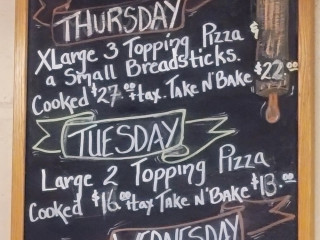 THURSDAY
XLarge 3 Topping Pizza &
a Small Breadsticks.
Cooked $27.00 +tax. Take N' Bake $22.00
TUESDAY
Large 2 Topping Pizza
Cooked $16.00 +tax Take N' Bake $13.00
WEDNESDAY